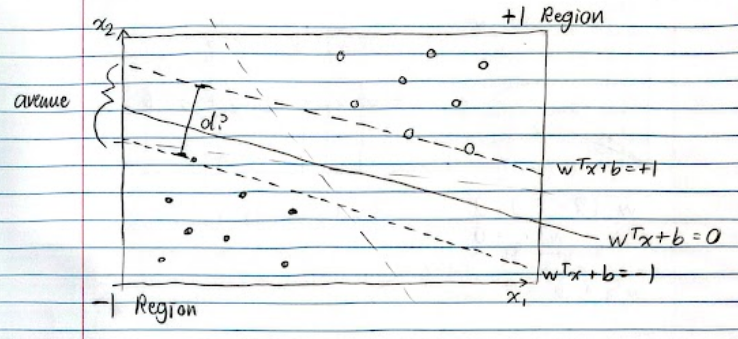 +1 Region
x₂
avenue
d?
wᵀx+b=+1
wᵀx+b=0
wᵀx+b=-1
x₁
-1 Region